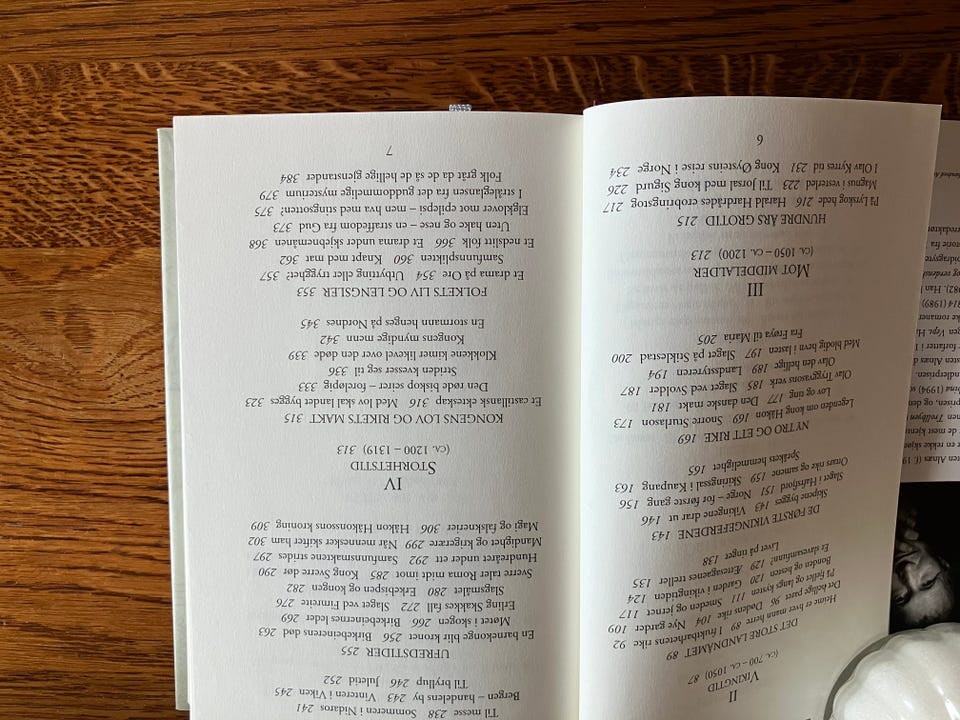 II
VIKINGTID
(CA. 700 – CA. 1050) 87
DET STORE LANDNÅMET 89
Heime er hver mann herre 89 I fruktbarhetens rike 92
Det hellige paret 96 Dødens rike 104 Nye garder 109
På fjellet og langs kysten 111 Smeden og jernet 117
Bonden og hesten 120 Garden i vikingtiden 124
Et slavesamfunn? 129 Ættesagaens treller 135
Livet på tinget 138
DE FØRSTE VIKINGEFERDENE 143
Skipene bygges 143 Vikingene drar ut 146
Slaget i Hafrsfjord 151 Norge – for første gang 156
Ornas rike og samene 159 Skiringssal i Kaupang 163
Språkets hemmelighet 165
NYTRO OG ETT RIKE 169
Legenden om kong Håkon 169 Snorre Sturlason 173
Lov og ting 177 Den danske makt 181
Olav Tryggvasons verk 185 Slaget ved Svolder 187
Olav den hellige 189 Landsstyreren 194
Med blodig hevn i lasten 197 Slaget på Stiklestad 200
Fra Frøya til Maria 205
III
MOT MIDDELALDER
(CA. 1050 – CA. 1200) 213
HUNDRE ÅRS GROTID 215
På Lyrskog hede 216 Harald Hardrådes erobringstog 217
Magnus i vesterled 223 Til Jorsal med kong Sigurd 226
I Olav Kyrres tid 231 Kong Øysteins reise i Norge 234
6
Til messe 238 Sommeren i Nidaros 241
Bergen – handelens by 243 Vinteren i Viken 245
Til bryllup 246 Juletid 252
UFREDSTIDER 255
En barnekonge blir kronet 256 Birkebeinerens død 263
Møtet i skogen 266 Birkebeinernes leder 269
Erling Skakkes fall 272 Slaget ved Fimreite 276
Slagsmålet 280 Erkebispen og kongen 282
Sverre taler Roma midt imot 285 Kong Sverre dør 290
Hundreåret under ett 292 Samfunnsmaktene strides 297
Mandighet og krigerære 299 Når mennesker skifter ham 302
Magi og falskneriet 306 Håkon Håkonssons kroning 309
IV
STORHETSTID
(CA. 1200 – 1319) 313
KONGENS LOV OG RIKETS MAKT 315
Et castiliansk ekteskap 316 Med lov skal landet bygges 323
Den røde biskop seirer – foreløpig 333
Striden kvesser seg til 336
Klokkene kimer likevel over den døde 339
Kongens myndige menn 342
En stormann henges på Nordnes 345
FOLKETS LIV OG LENGSLER 353
Et drama på Ore 354 Utbytting eller trygghet? 357
Samfunnsplikten 360 Knapt med mat 362
Et nedslitt folk 366 Et drama under skjebnemånen 368
Uten hake og nese – en straffedom fra Gud 373
Elgklover mot epilepsi – men hva med stingsorten? 375
I stråleglansen fra det guddommelige mysterium 379
Folk gråt da de så de hellige gjenstander 384
7